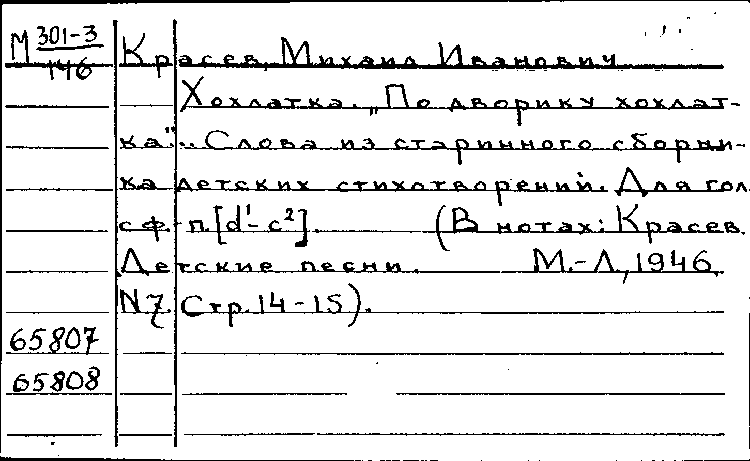 М 301-3/146
Красев, Михаил Иванович
Хохлатка. „По дворику хохлат-
ка". Слова из старинного сборни-
ка детских стихотворений. Для гол.
с ф.-п. [d¹-c²]. (В нотах: Красев.
Детские песни. М.-Л., 1946,
N 7. Стр. 14-15).
65807
65808